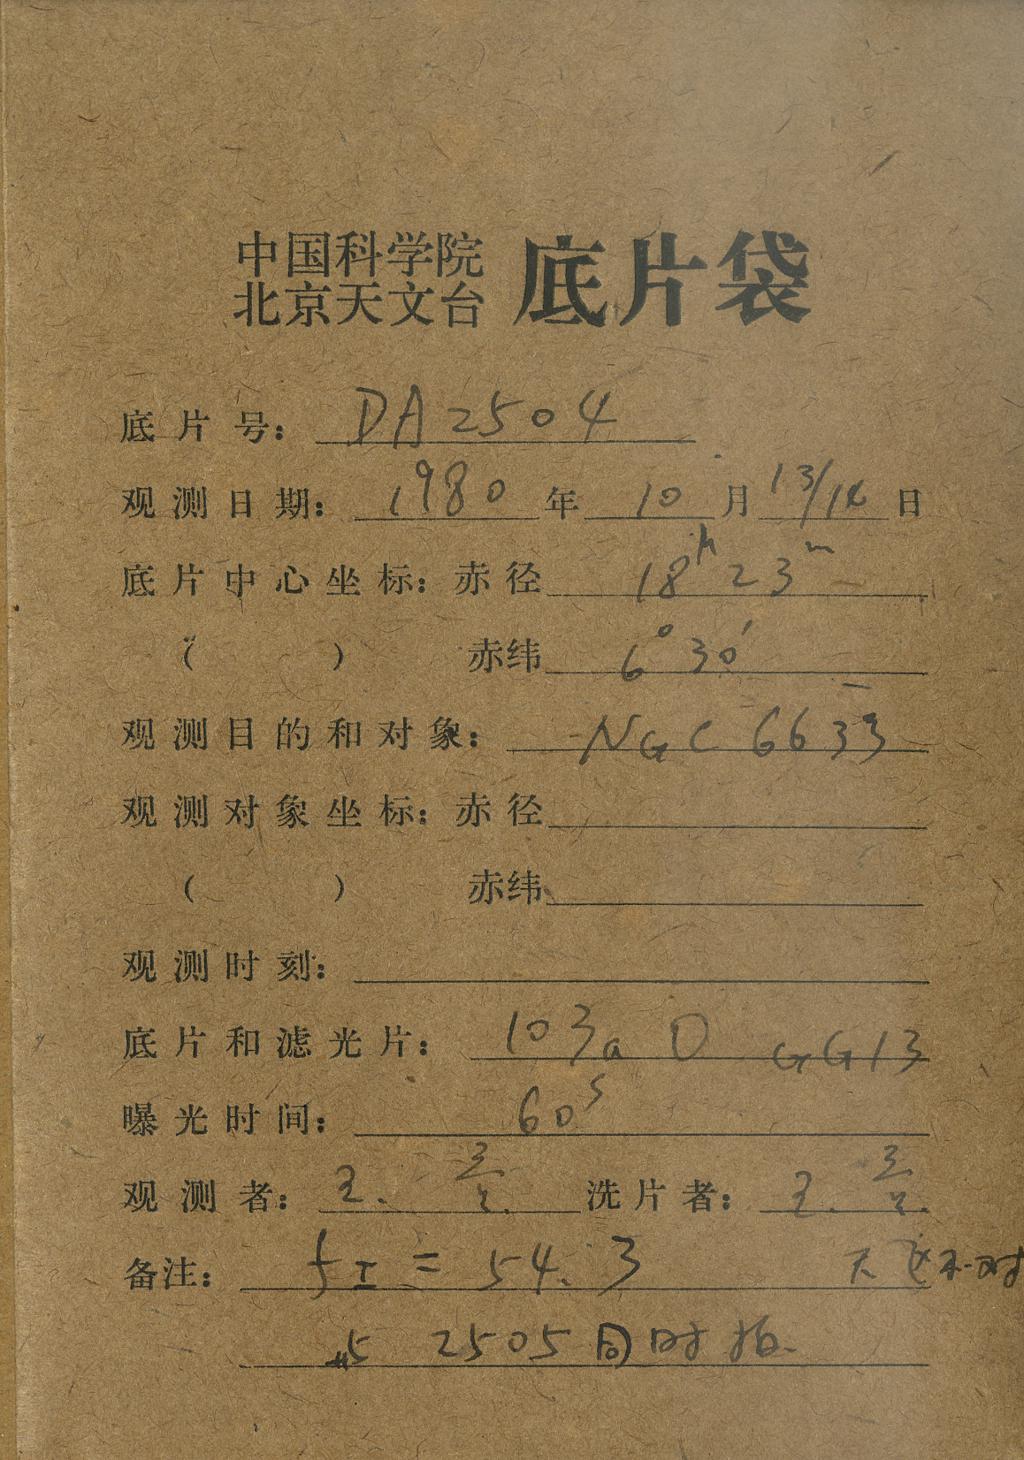 中国科学院
北京天文台 底片袋
底片号: DA2504
观测日期: 1980 年 10 月 13/14 日
底片中心坐标: 赤径 18h 23m
( ) 赤纬 6° 30′
观测目的和对象: NGC 6633
观测对象坐标: 赤径
( ) 赤纬
观测时刻:
底片和滤光片: 103aO GG13
曝光时间: 60s
观测者: 王. 洗片者: 王.
备注: fI = 54.3 不对
与 2505 同时拍.